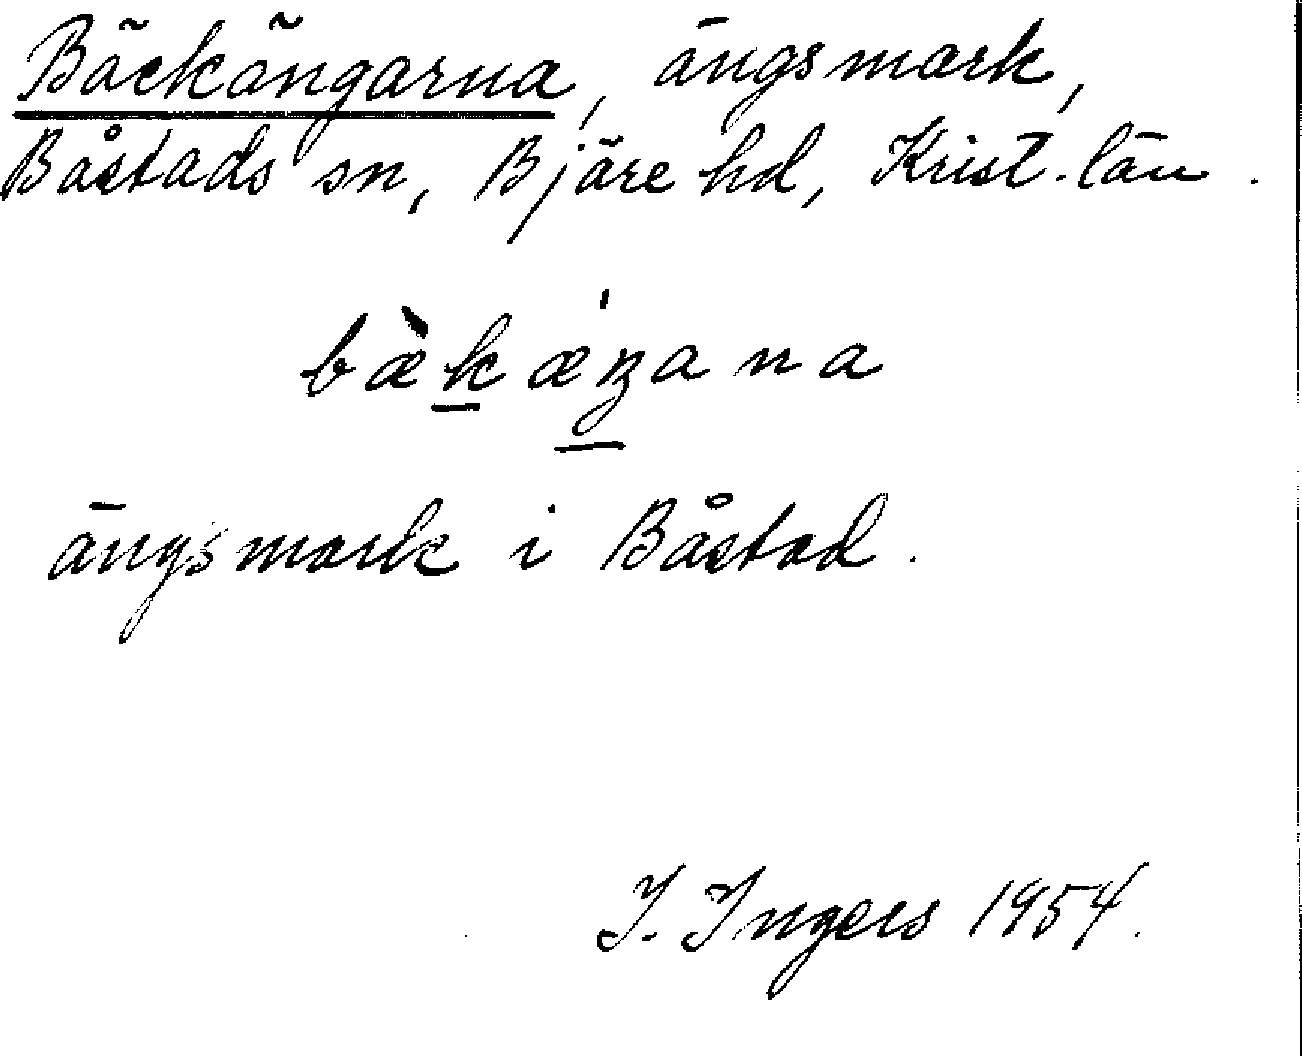 Bäckängarna, ängsmark,
Båstads sn, Bjäre hd, Krist. län.
bæ̀k̲ǽŋ̲ana
ängsmark i Båstad.
I. Ingers 1954.